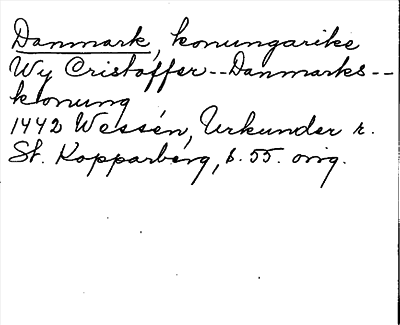 Danmark, konungarike
Wy Cristoffer--Danmarks--
konung
1442 Wessén, Urkunder r.
St. Kopparberg, s. 55. orig.